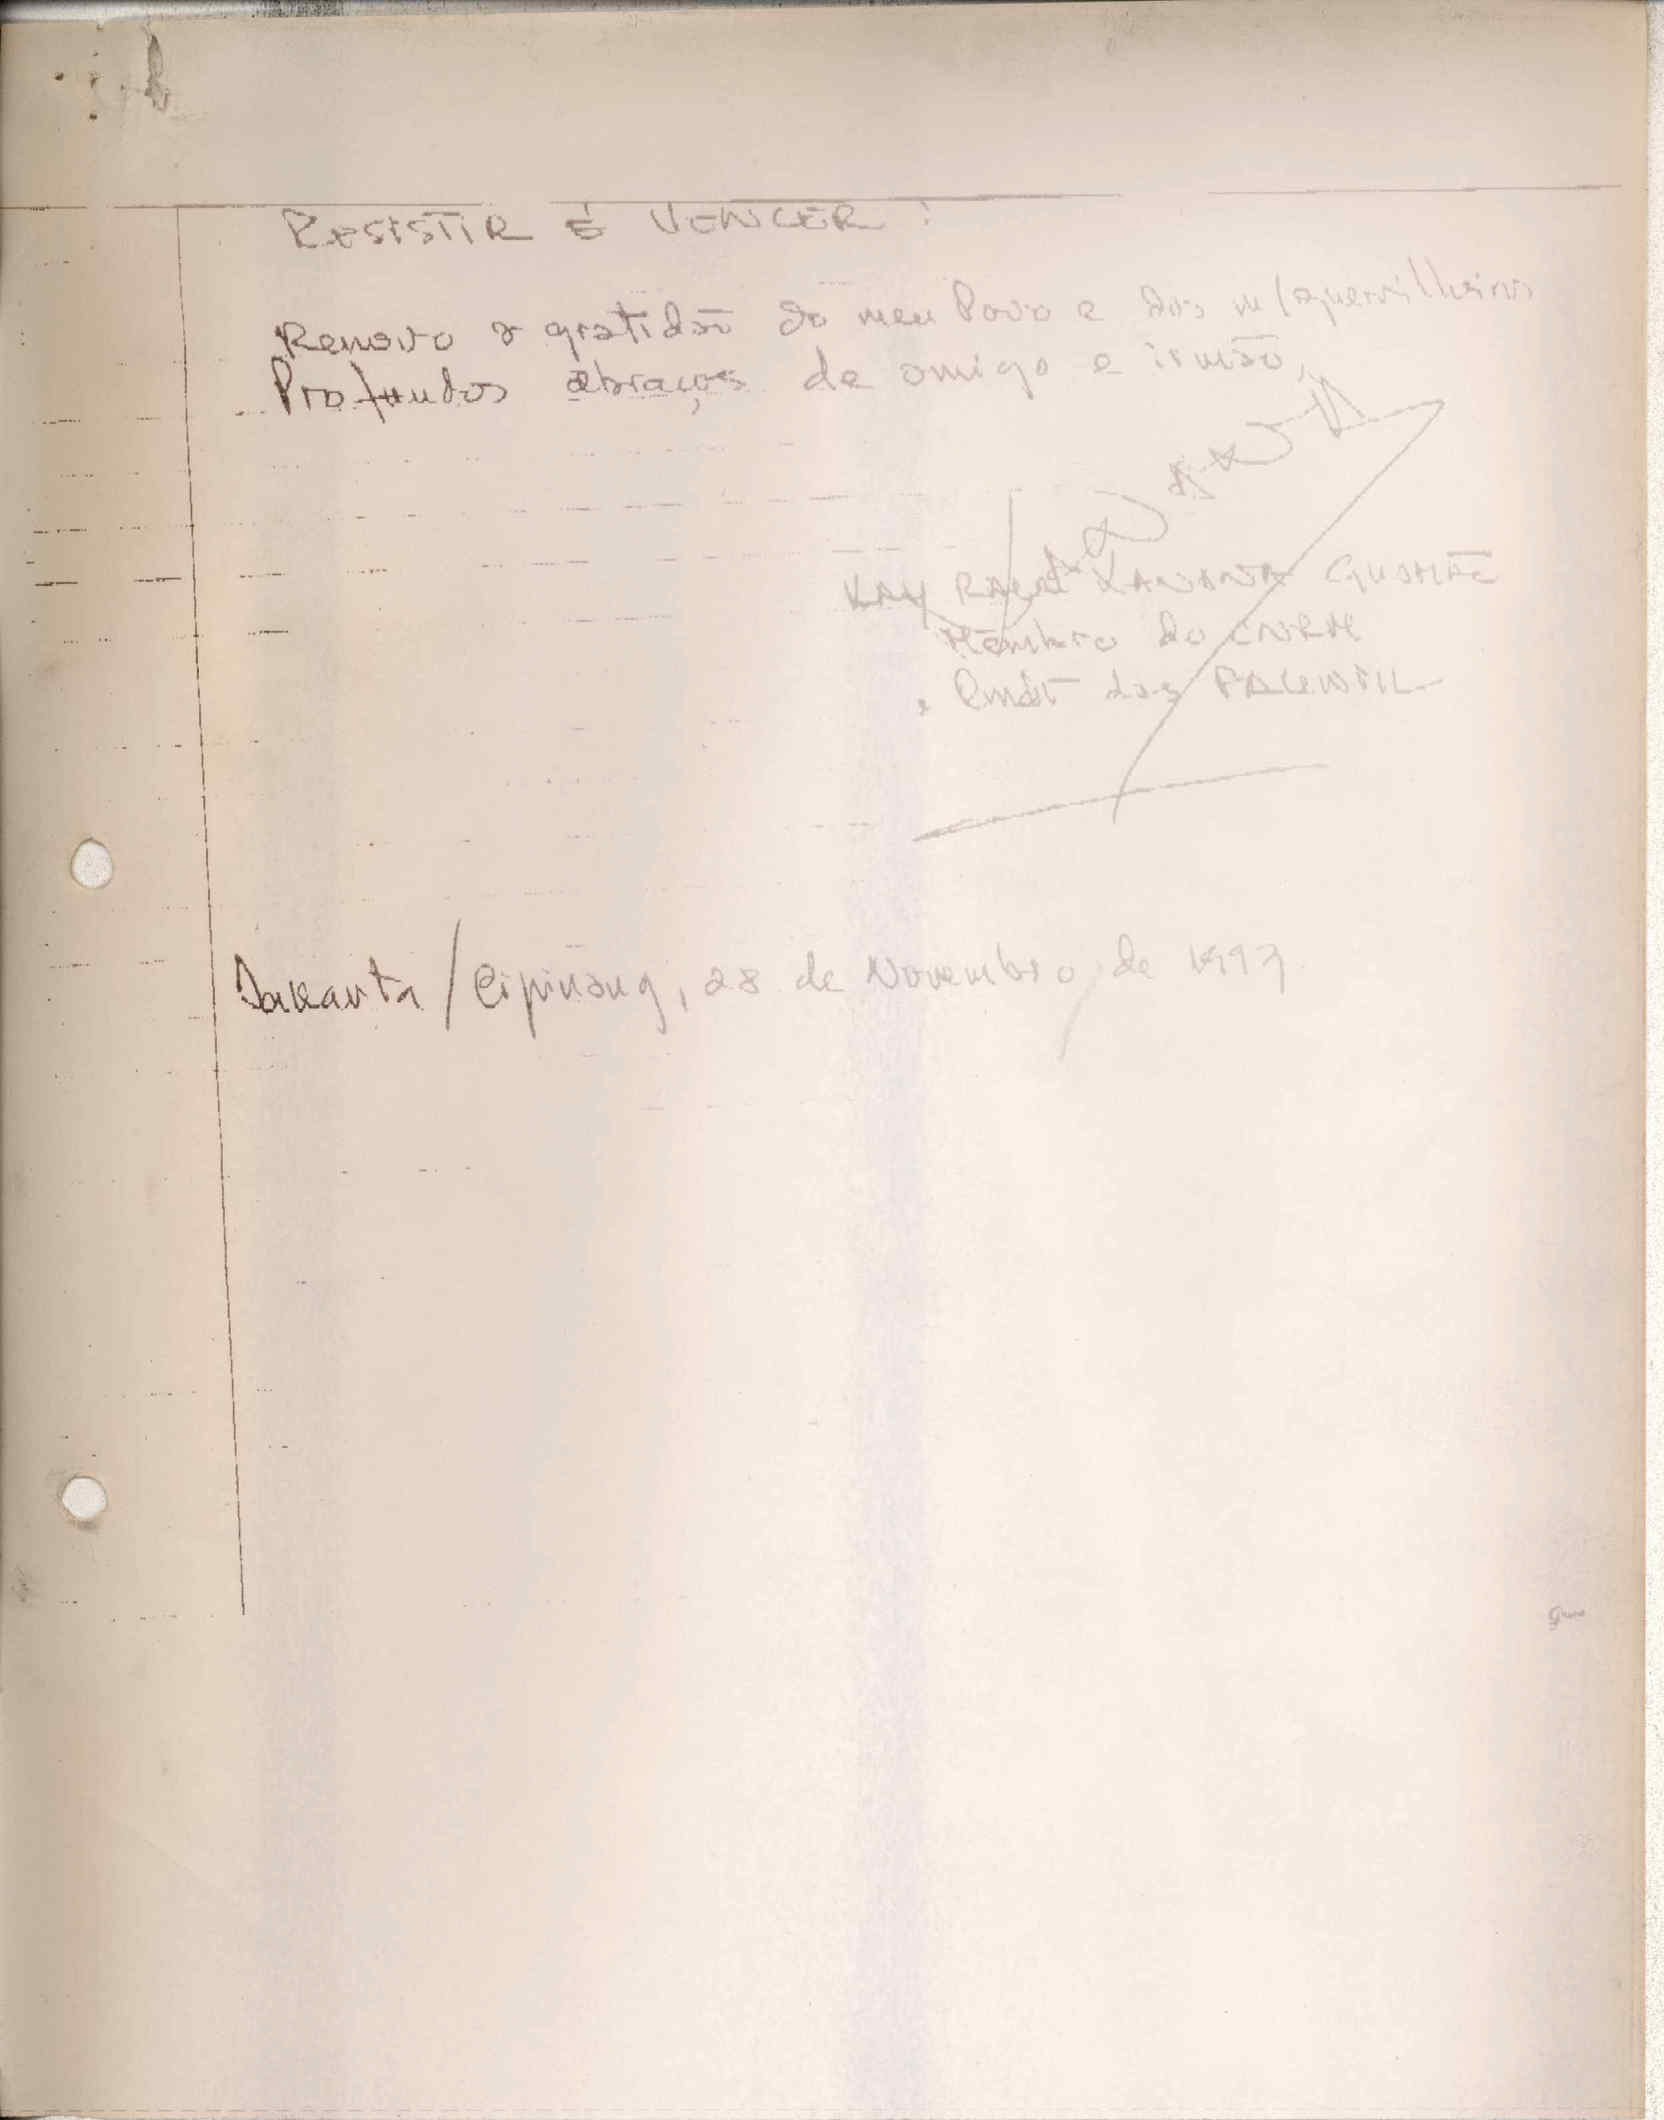 RESISTIR É VENCER!
Renovo a gratidão do meu Povo e dos m/guerrilheiros
Profundos abraços de amigo e irmão,
Xanana
KAY RALA XANANA GUSMÃO
Membro do CNRM
e Cmdt das FALINTIL
Jakarta/Cipinang, 28 de Novembro de 1997